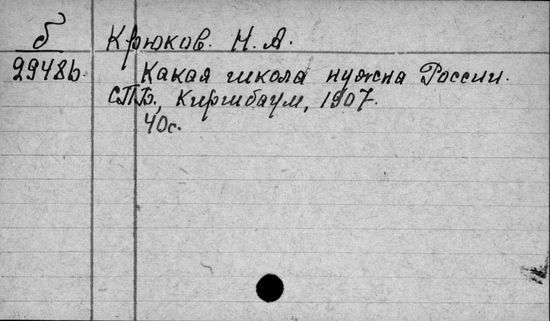 б
29486.
Крюков. Н. А.
Какая школа нужна России.
СПБ., Киршбаум, 1907.
40с.